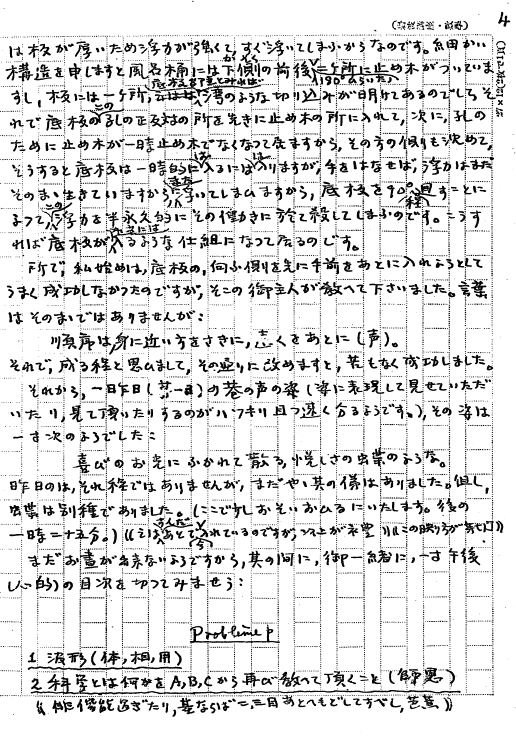 4
は板が厚いため浮力が強くて、すぐ浮いてしまふからなのです。細かい
構造を申しますと風呂桶には下側の前後二ヶ所に止め木がついていま
すし、板には一ヶ所、湾のような切り込みが明けてあるのでして、そ
れで底板の孔の正反対の所を先きに止め木の所に入れて、次に、孔の
ために止め木が一時止め木でなくなって居ますから、その方の側も沈めて、
そうすると底板は一時的には入るには入りますが、手をはなせば、浮力はまだ
そのまゝ生きていますから浮いてしまひますから、底板を90°程廻すことに
よって、この浮力を半永久的にその働きに於て殺してしまふのです。こうす
れば底板が入るような仕組になって居るのです。
所で、私始めは、底板の、向ふ側を先に手前をあとに入れようとして
うまく成功しなかったのですが、そこの御主人が教へて下さいました。言葉
はそのまゝではありませんが:
順序は身に近い方をさきに、遠くをあとに(声)。
それで、成る程と思ひまして、その通りに改めますと、苦もなく成功しました。
それから、一昨日(廿一日)の巷の声の姿(姿に表現して見せていただ
いたり、見て頂いたりするのがハッキリ且つ速く分るようです。)、その姿は
一寸次のようでした:
喜びのお空にふかれて散る、悦しさの虫葉のような。
昨日のは、それ程ではありませんが、まだやゝ其の儀はありました。但し、
虫葉は別種でありました。(ここですこしおそいおひるにいたします。後の
一時=十五分。)
まだお昼が出来ないようですから、其の間に、御一緒に、一寸午後
の目次を切ってみませう:
Problème P
1 波形(体、相、用)
2 科学とは何かをA,B,Cから再び教へて頂くこと(師恩)
《俳諧能過ぎたり、碁ならば二、三目あとへもどしてすべし、芭蕉》